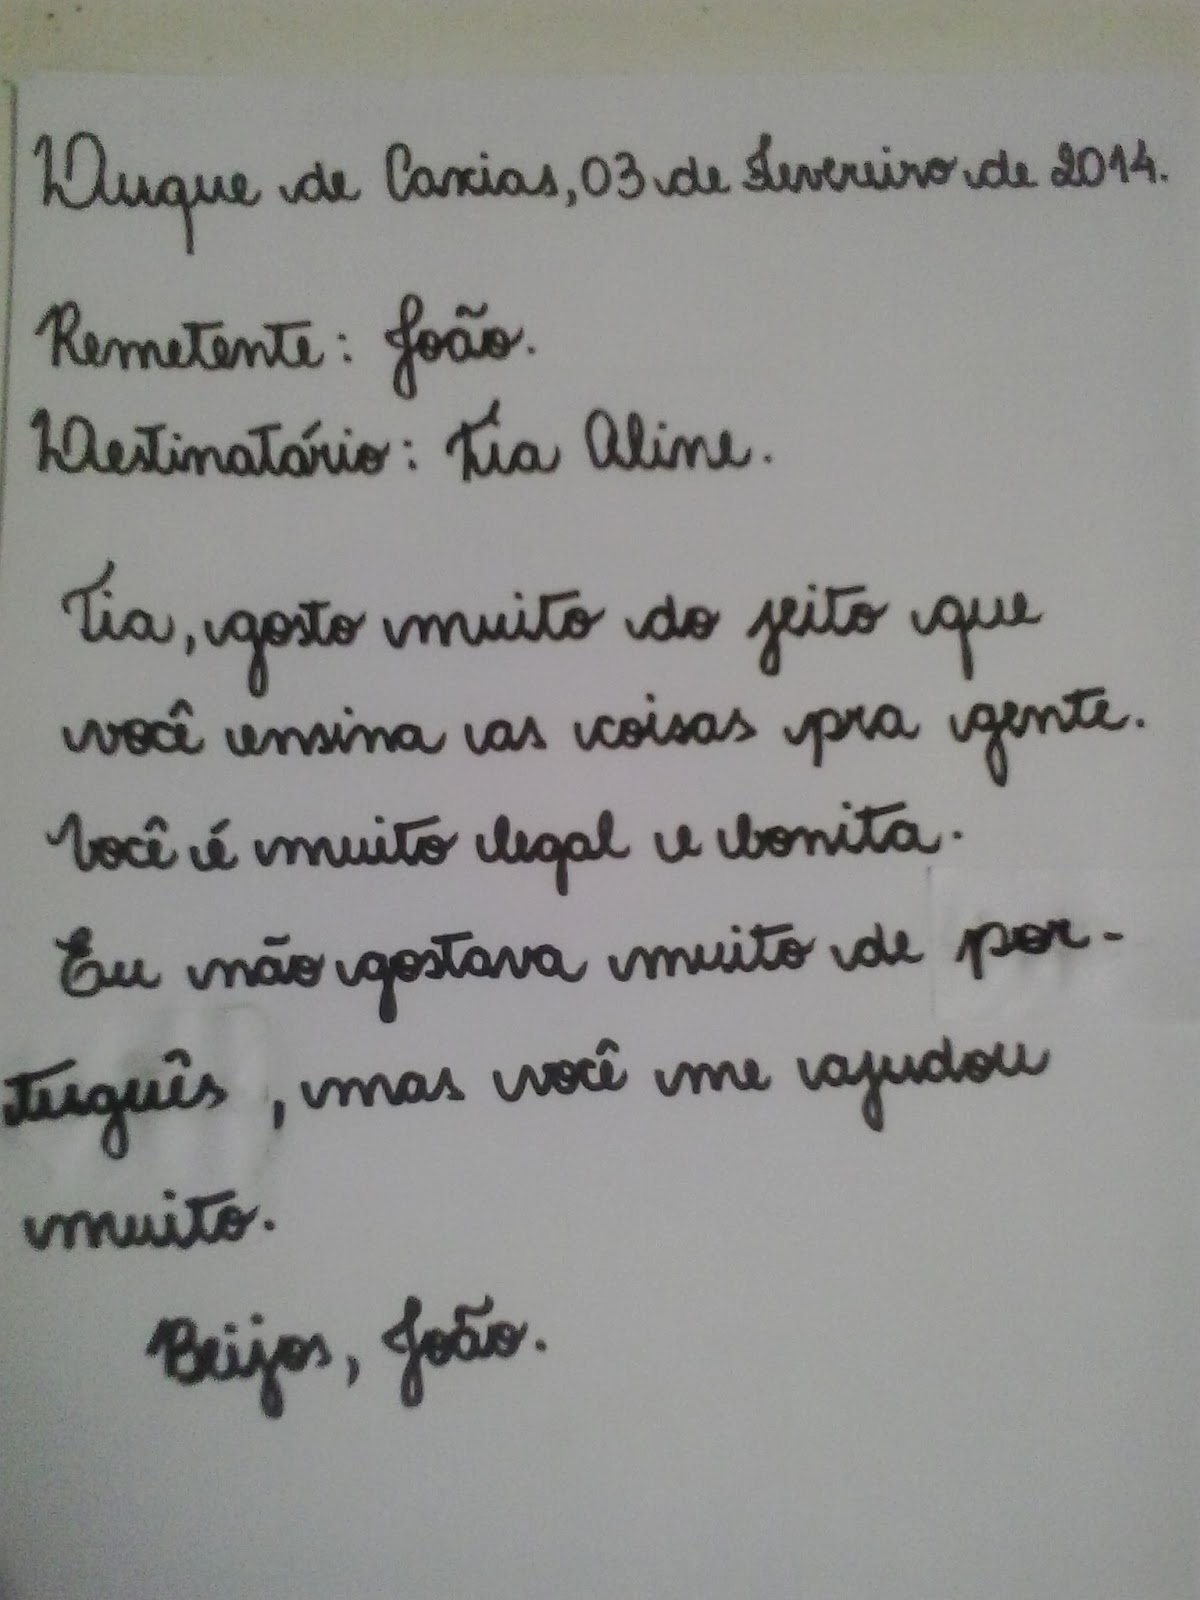 Duque de Caxias, 03 de Fevereiro de 2014.
Remetente: João.
Destinatário: Tia Aline.
Tia, gosto muito do jeito que
você ensina as coisas pra gente.
Você é muito legal e bonita.
Eu não gostava muito de por-
tuguês, mas você me ajudou
muito.
Beijos, João.